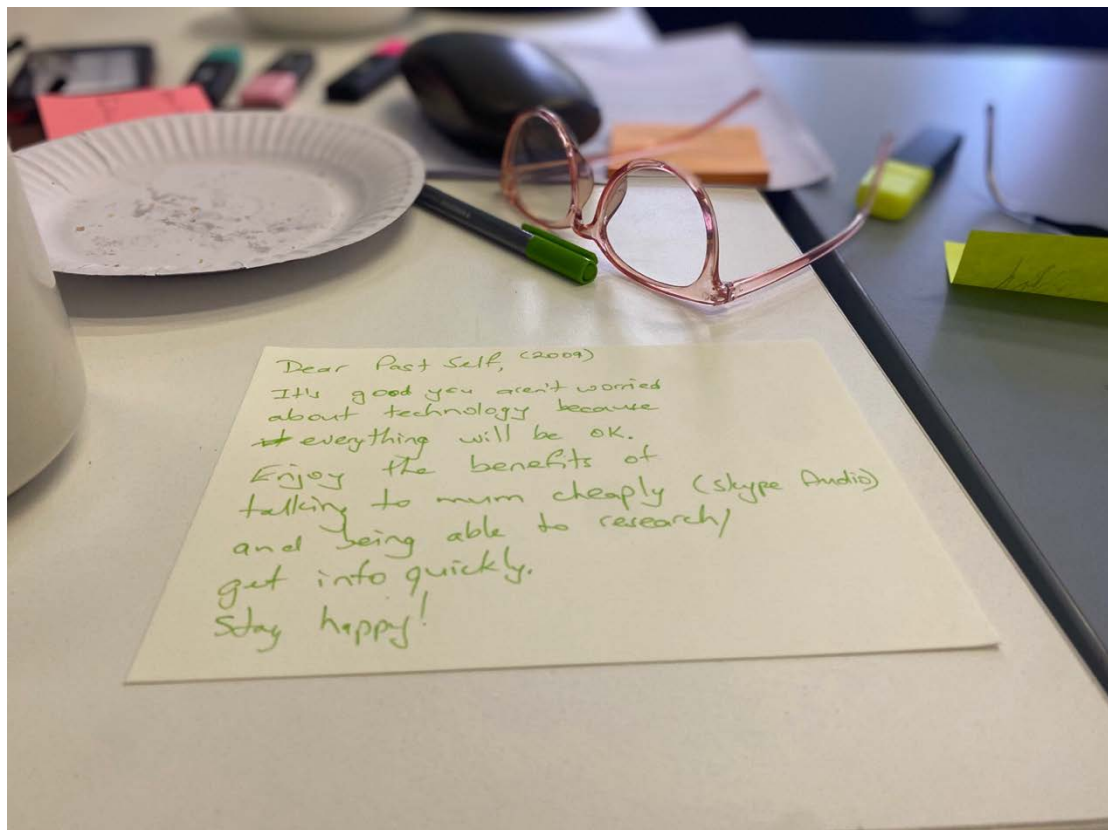 Dear Past Self, (2009)
It's good you aren't worried
about technology because
everything will be OK.
Enjoy the benefits of
talking to mum cheaply (Skype Audio)
and being able to research/
get info quickly.
Stay happy!